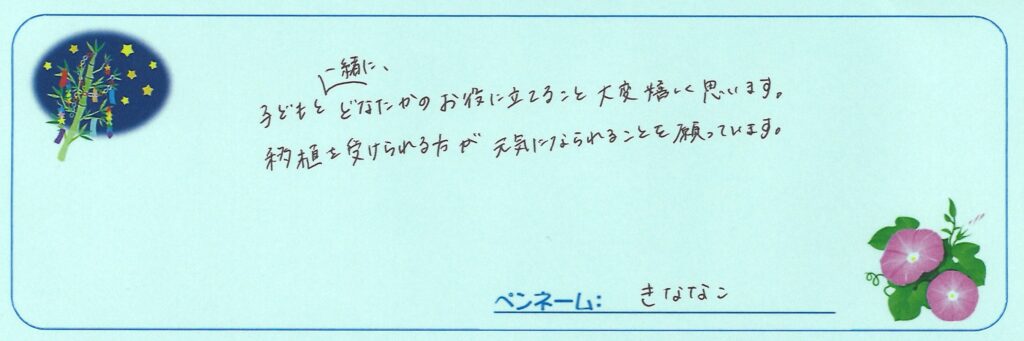 子どもと一緒に、どなたかのお役に立てること大変嬉しく思います。
移植を受けられる方が元気になられることを願っています。
ペンネーム: きななこ